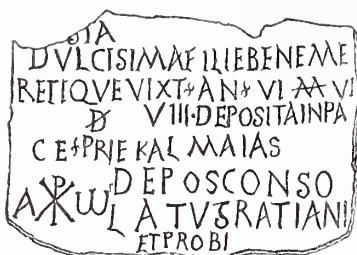 ƧIA
DVLCISIMAE ILIEBENEME
RETIQVEVIXT AN VI M VI
D VIII·DEPOSITAINPA
CE PRIEKAL MAIAS
A ☧ ω DEPOSCONSO
LATVSRATIANI
ETPROBI